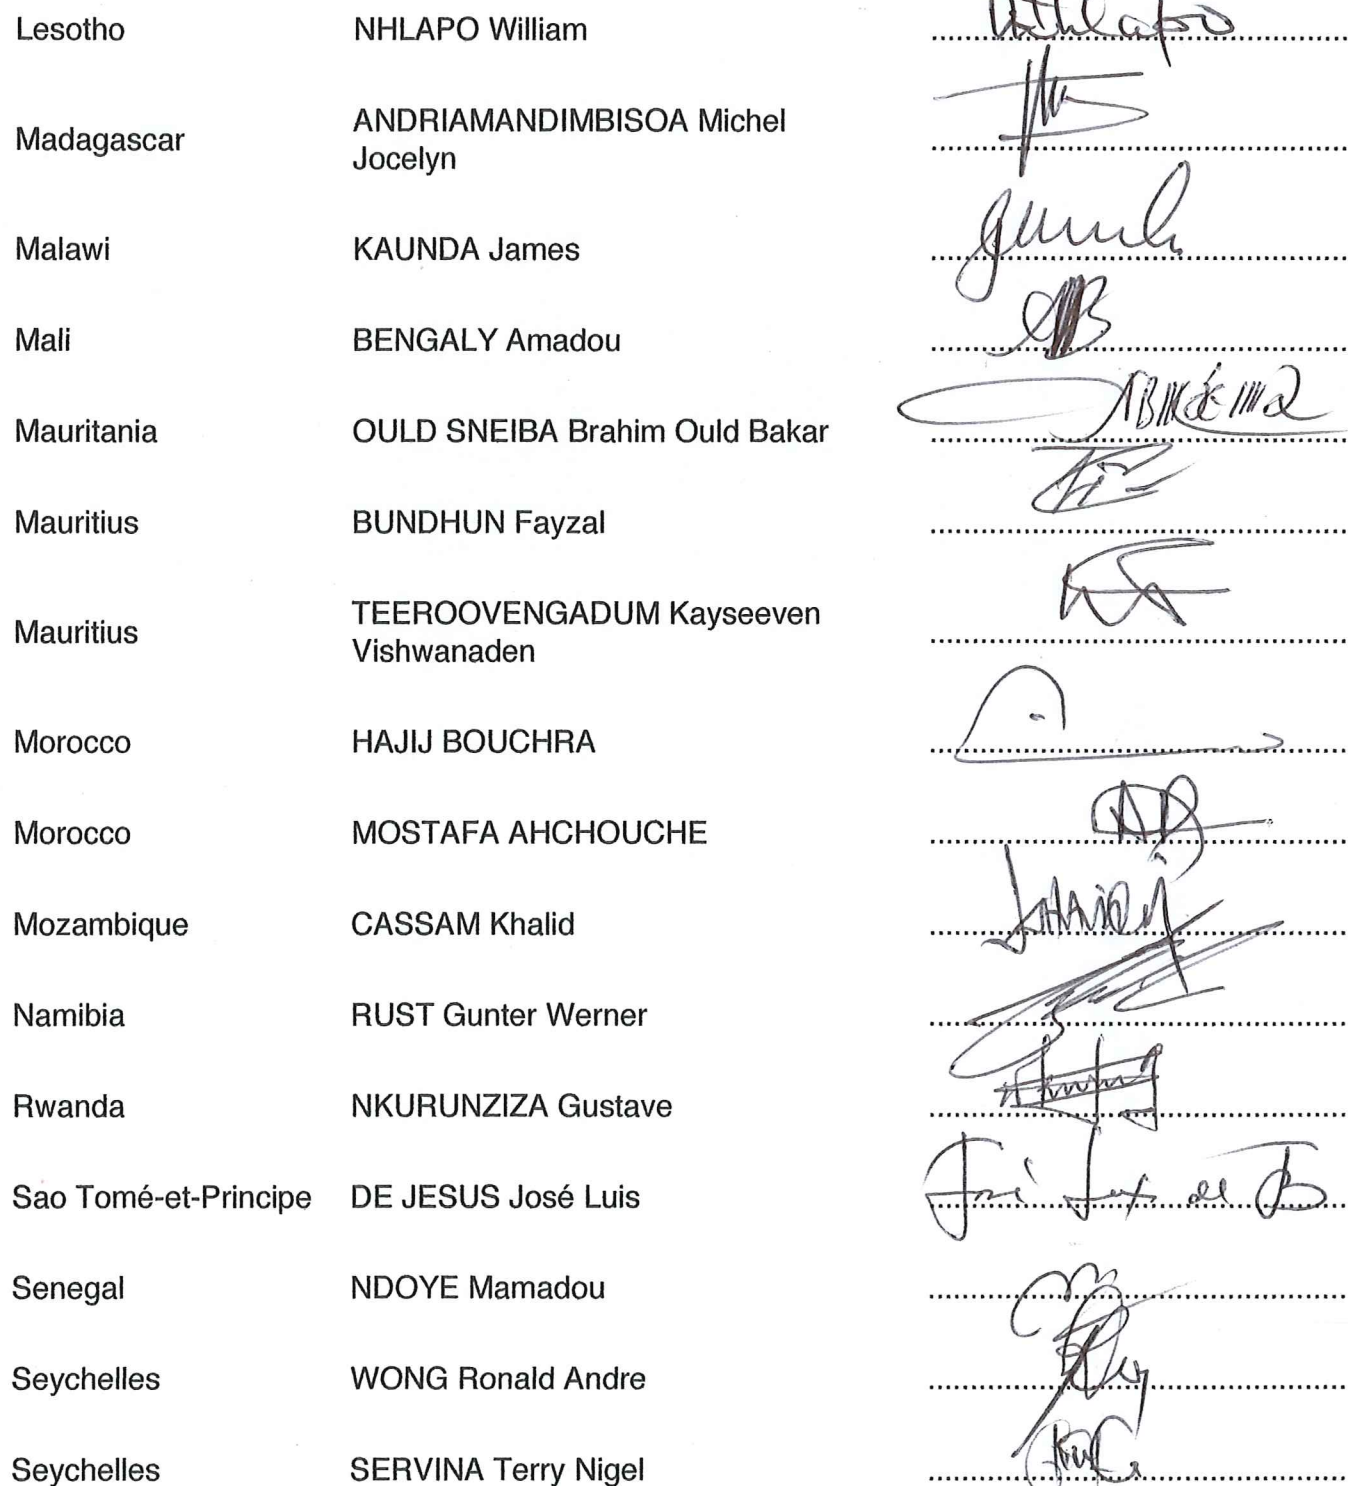 Lesotho NHLAPO William Nhlapo
Madagascar ANDRIAMANDIMBISOA Michel
Jocelyn
Malawi KAUNDA James
Mali BENGALY Amadou
Mauritania OULD SNEIBA Brahim Ould Bakar
Mauritius BUNDHUN Fayzal
Mauritius TEEROOVENGADUM Kayseeven
Vishwanaden
Morocco HAJIJ BOUCHRA
Morocco MOSTAFA AHCHOUCHE
Mozambique CASSAM Khalid
Namibia RUST Gunter Werner
Rwanda NKURUNZIZA Gustave
Sao Tomé-et-Principe DE JESUS José Luis José Luis de
Senegal NDOYE Mamadou
Seychelles WONG Ronald Andre
Seychelles SERVINA Terry Nigel